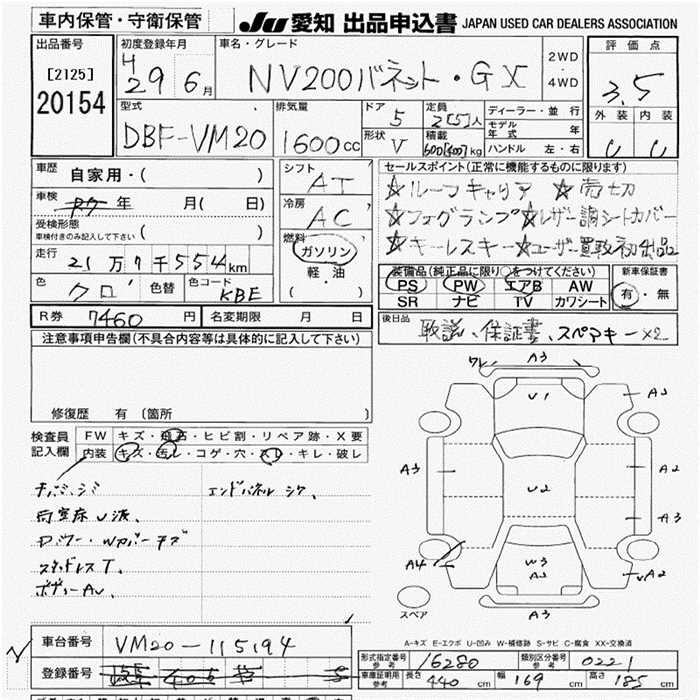 車内保管・守衛保管
JU 愛知 出品申込書 JAPAN USED CAR DEALERS ASSOCIATION
出品番号 [2125] 20154
初度登録年月 H 29 6月
車名・グレード NV200バネット・GX
2WD・4WD
評価点 3.5
外装 内装
型式 DBF-VM20
排気量 1600cc
ドア 5
形状 V
定員 2[5]人
積載 600[400]kg
ディーラー・並行
モデル年式 年
ハンドル 左・右
車歴 自家用・( )
車検 年 月( 日)
受検形態 車検付きのみ記入して下さい ( )
走行 21万7千554km
色 クロ 色替 色コード KBE
シフト AT
冷房 AC
燃料 ガソリン 軽油 ( )
セールスポイント(正常に機能するものに限ります)
☆ルーフキャリア ☆売切
☆フォグランプ ☆レザー調シートカバー
☆キーレスキー ☆ユーザー買取初出品
装備品(純正品に限り○をつけてください)
PS PW エアB AW
SR ナビ TV カワシート
新車保証書 有・無
R券 7460円 名変期限 月 日
後日品 取説、保証書、スペアキー×2
注意事項申告欄(不具合内容等は具体的に記入して下さい)
修復歴 有 〔箇所 〕
検査員記入欄
FW キズ・飛石・ヒビ割・リペア跡・X要
内装 キズ・汚レ・コゲ・穴・スレ・キレ・破レ
エンドパネル
スタッドレスT、
ワレ A3
U1
A3
U2
A3
A3
A4
W3
A2
A2
A3
スペア
A-キズ E-エクボ U-凹み W-補修跡 S-サビ C-腐食 XX-交換済
車台番号 VM20-115194
登録番号
形式指定番号 参考 16280
類別区分番号 参考 0221
車庫証明用 参考 長さ 440cm 幅 169cm 高さ 185cm